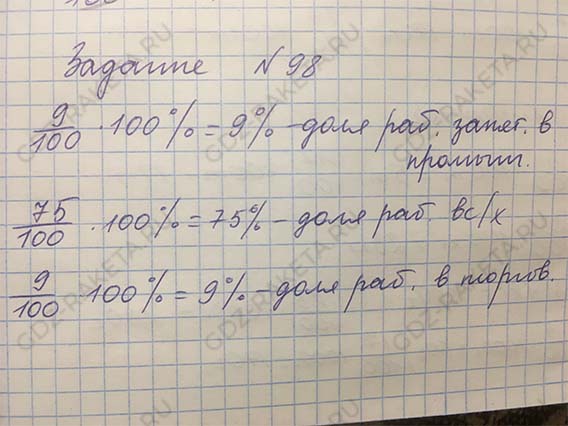 Задание №98
9/100 · 100% = 9% - доля раб. занят. в
промыш.
75/100 · 100% = 75% - доля раб. в с/х
9/100 · 100% = 9% - доля раб. в торгов.
GDZ-RAKETA.RU